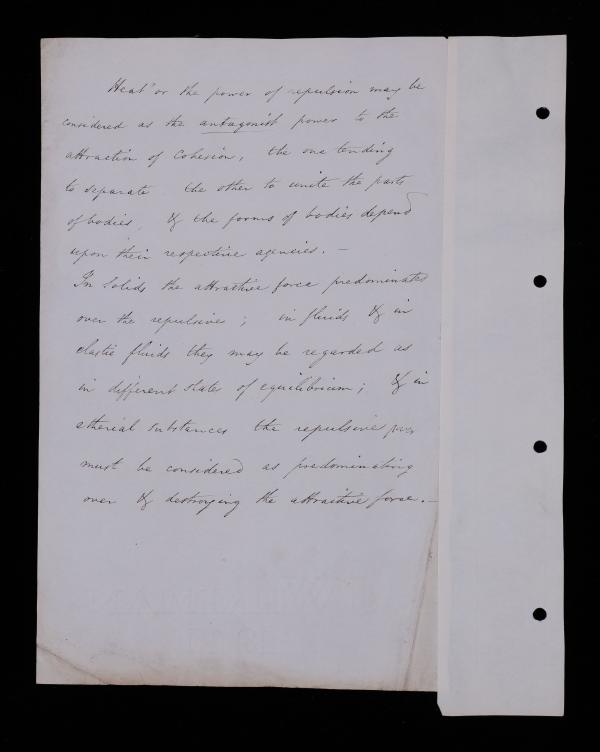 Heat or the power of repulsion may be
considered as the antagonist power to the
attraction of Cohesion, the one tending
to separate the other to unite the parts
of bodies, & the forms of bodies depend
upon their respective agencies. —
In Solids the attractive force predominates
over the repulsive; in fluids & in
elastic fluids they may be regarded as
in different states of equilibrium; & in
etherial substances the repulsive
must be considered as predominating
over & destroying the attractive force. —